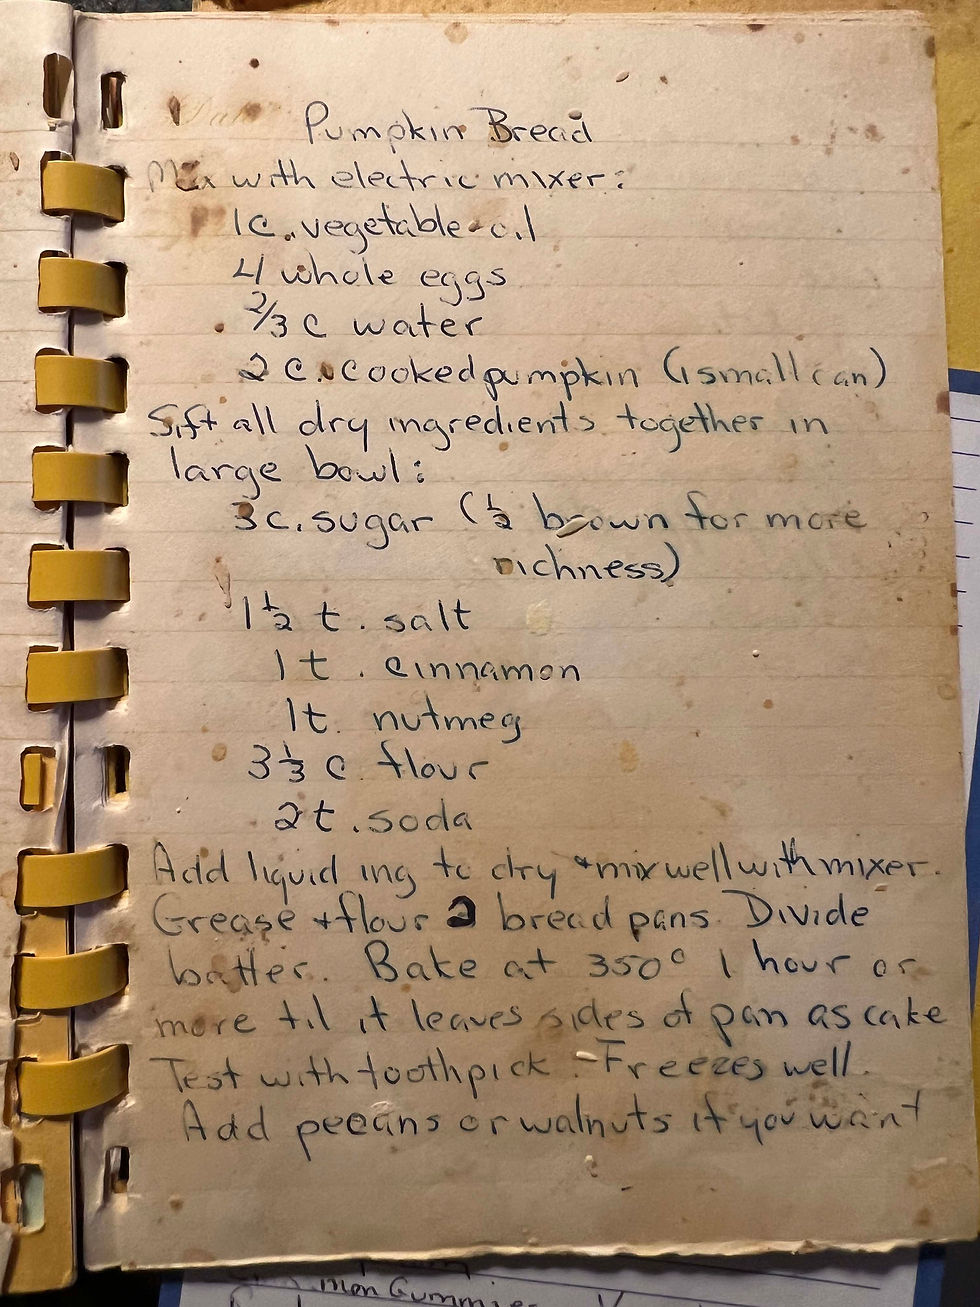 Pumpkin Bread
Mix with electric mixer:
1c. vegetable oil
4 whole eggs
2/3 c water
2 c. cooked pumpkin (1 small can)
Sift all dry ingredients together in
large bowl:
3c. sugar (1/2 brown for more
richness)
1 1/2 t. salt
1t. cinnamon
1t. nutmeg
3 1/3 c flour
2t. soda
Add liquid ing to dry + mix well with mixer.
Grease + flour 2 bread pans. Divide
batter. Bake at 350° 1 hour or
more til it leaves sides of pan as cake
Test with toothpick. - Freezes well.
Add pecans or walnuts if you want
mon Gummies